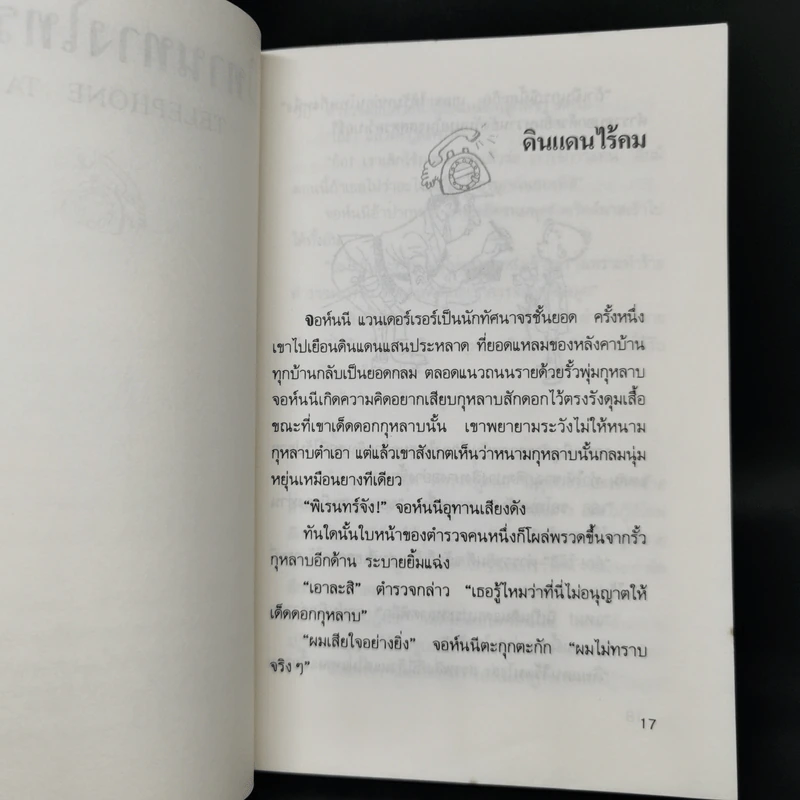 ดินแดนไร้คม
จอห์นนี แวนเดอร์เรอร์เป็นนักทัศนาจรชั้นยอด ครั้งหนึ่ง
เขาไปเยือนดินแดนแสนประหลาด ที่ยอดแหลมของหลังคาบ้าน
ทุกบ้านกลับเป็นยอดกลม ตลอดแนวถนนรายด้วยรั้วพุ่มกุหลาบ
จอห์นนีเกิดความคิดอยากเสียบกุหลาบสักดอกไว้ตรงรังดุมเสื้อ
ขณะที่เขาเด็ดดอกกุหลาบนั้น เขาพยายามระวังไม่ให้หนาม
กุหลาบตำเอา แต่แล้วเขาสังเกตเห็นว่าหนามกุหลาบนั้นกลมนุ่ม
หยุ่นเหมือนยางทีเดียว
“พิเรนทร์จัง!” จอห์นนีอุทานเสียงดัง
ทันใดนั้นใบหน้าของตำรวจคนหนึ่งก็โผล่พรวดขึ้นจากรั้ว
กุหลาบอีกด้าน ระบายยิ้มแฉ่ง
“เอาละสิ” ตำรวจกล่าว “เธอรู้ไหมว่าที่นี่ไม่อนุญาตให้
เด็ดดอกกุหลาบ”
“ผมเสียใจอย่างยิ่ง” จอห์นนีตะกุกตะกัก “ผมไม่ทราบ
จริงๆ”
17